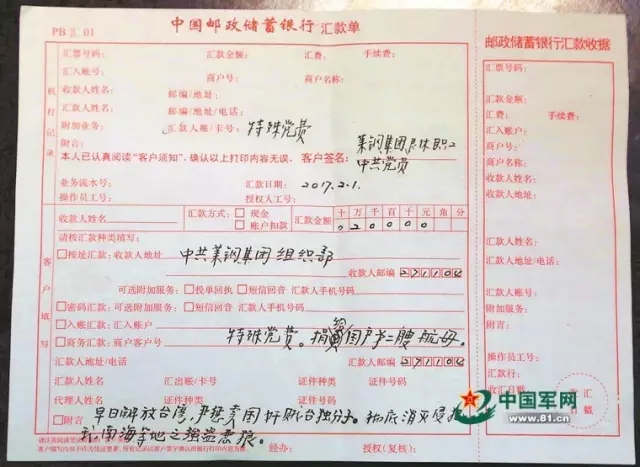 PB汇01
中国邮政储蓄银行 汇款单
汇票号码: 汇款金额: 汇费: 手续费:
汇入账号: 商户号: 商户名称:
收款人姓名: 邮编/地址:
汇款人姓名: 邮编/地址/电话:
附加业务: 汇款人账/卡号: 特殊党费
附言: 莱钢集团退休职工
本人已认真阅读“客户须知”,确认以上打印内容无误。 客户签名: 中共党员
业务流水号: 汇款日期: 2017.2.1.
操作员工号: 授权人工号:
机打记录
收款人姓名 汇款方式: 现金 账户扣款 汇款金额 十万千百十元角分
020000
请按汇款种类填写:
按址汇款: 收款人地址 中共莱钢集团组织部
收款人邮编 271104
可选附加服务: 投单回执 短信回音 汇款人手机号码
密码汇款: 可选附加服务: 短信回音 汇款人手机号码
入账汇款: 汇入账户
商务汇款: 商户客户号 特殊党费。捐给国产第二艘航母。
汇款人地址/电话 汇款人邮编 271104
汇款人姓名 汇出账/卡号 证件种类 证件号码
代理人姓名 证件种类 证件号码
附言 早日解放台湾,严惩卖国奸贼台独分子。彻底消灭侵犯
我南海等地之强盗恶狼。
客户填写
经办: 授权(复核):
邮政储蓄银行汇款收据
汇票号码:
汇款金额:
汇费: 手续费:
汇入账户:
商户号:
商户名称:
收款人姓名:
收款人地址:
汇款人姓名:
汇款人地址/电话:
汇款人账号:
附加业务:
操作员工号:
汇款行:
收汇日期:
收汇
日戳
中国军网
www.81.cn